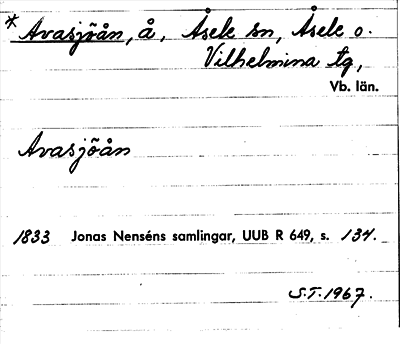 * Avasjöån, å, Åsele sn, Åsele o.
Vilhelmina tg,
Vb. län.
Avasjöån
1833 Jonas Nenséns samlingar, UUB R 649, s. 134.
S.T. 1967.